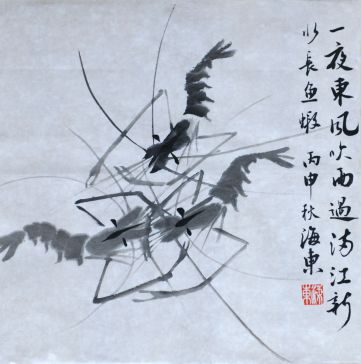 一夜東風吹雨過滿江新
水長魚蝦 丙申秋海東